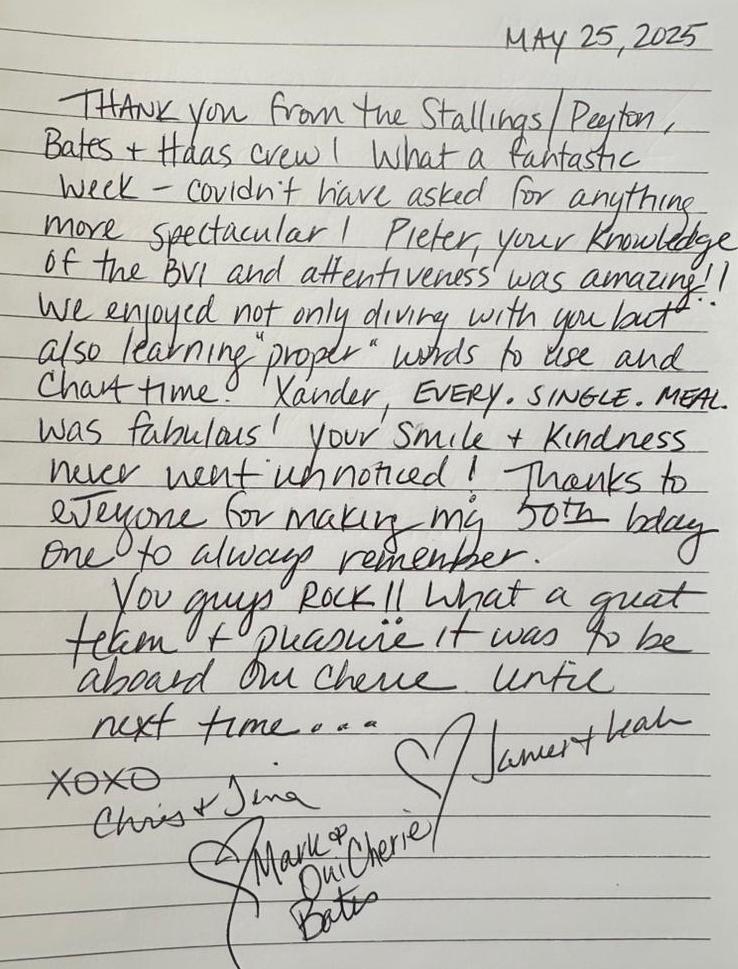 MAY 25, 2025
THANK you from the Stallings/Peyton,
Bates + Haas crew! What a fantastic
week - couldn't have asked for anything
more spectacular! Pieter, your knowledge
of the BVI and attentiveness was amazing!!
We enjoyed not only diving with you but
also learning "proper" words to use and
Chart time! Xander, EVERY. SINGLE. MEAL.
was fabulous! your smile + kindness
never went unnoticed! Thanks to
everyone for making my 50th bday
one to always remember.
You guys ROCK!! What a great
team + pleasure it was to be
aboard Oui Cherie until
next time...
James + Leah
XOXO
Chris + Jina
Mark &
Oui Cherie
Bates